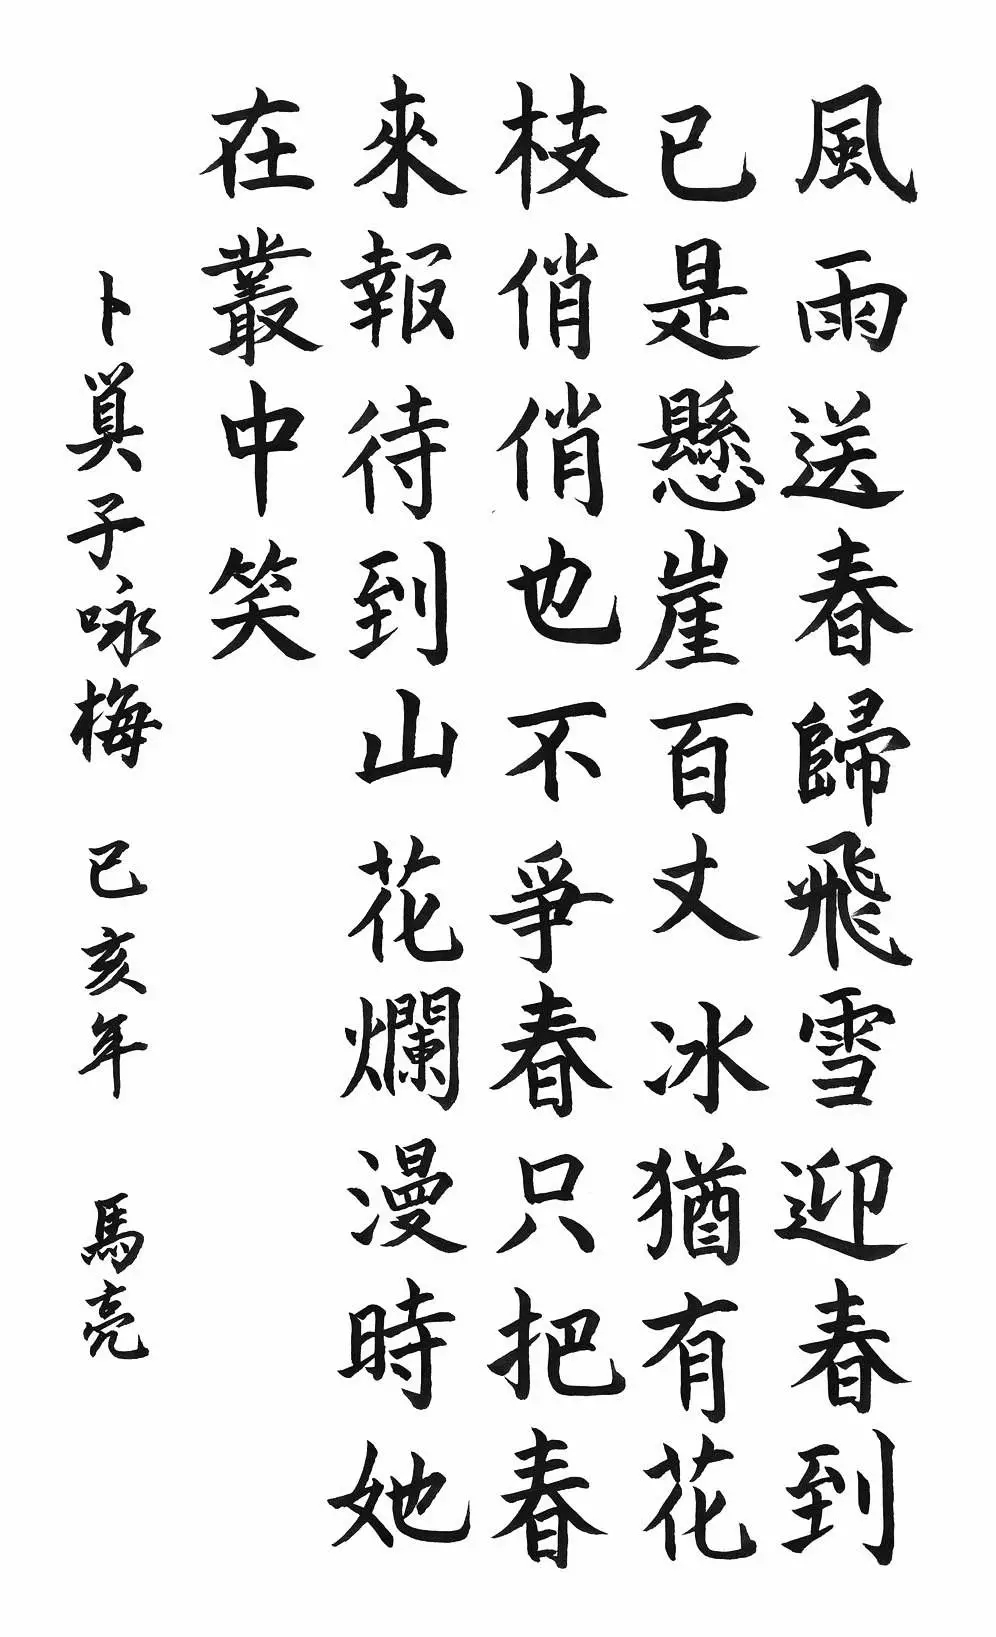 風雨送春歸飛雪迎春到
已是懸崖百丈冰猶有花
枝俏俏也不爭春只把春
來報待到山花爛漫時她
在叢中笑
卜算子咏梅 己亥年 馬亮